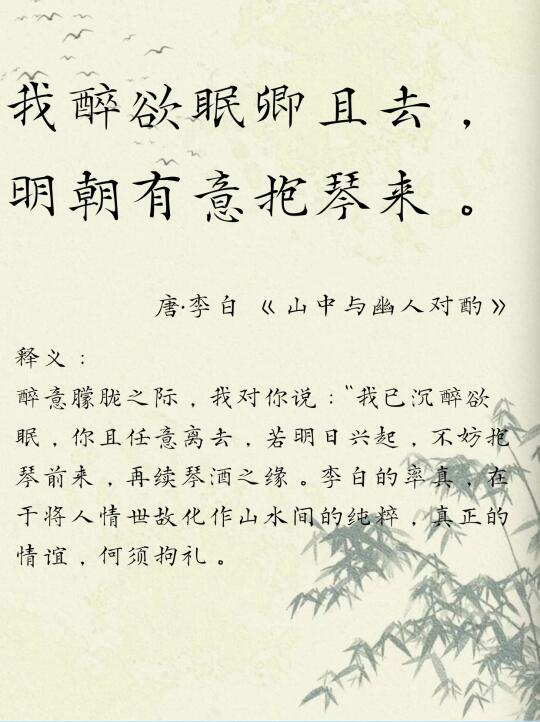 我醉欲眠卿且去，
明朝有意抱琴来。
唐·李白《山中与幽人对酌》
释义：
醉意朦胧之际，我对你说：“我已沉醉欲
眠，你且任意离去，若明日兴起，不妨抱
琴前来，再续琴酒之缘。李白的率真，在
于将人情世故化作山水间的纯粹，真正的
情谊，何须拘礼。